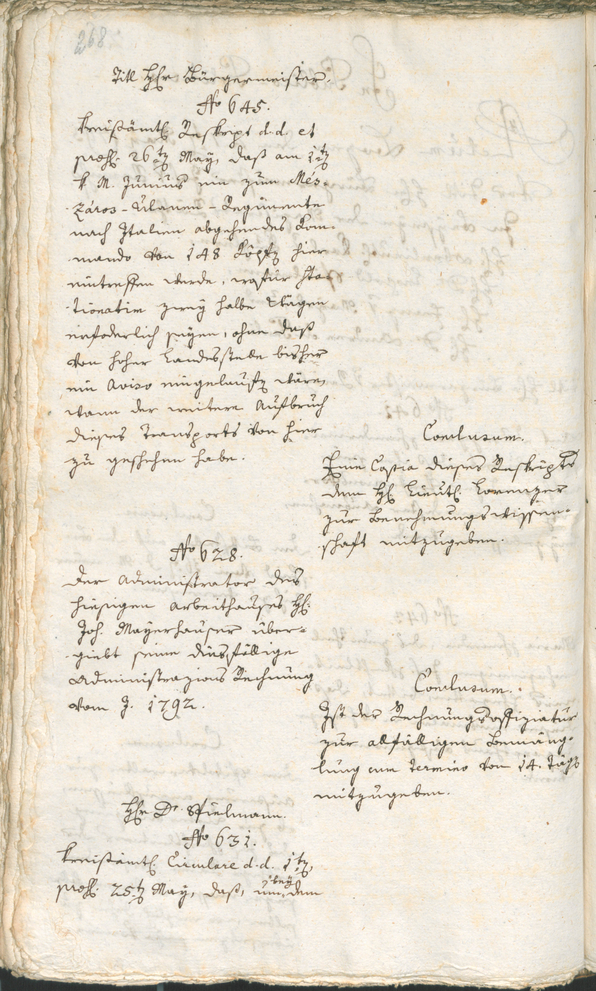 268
Titl. Hr. Bürgermeister.
No 645.
Kreisämtl. Reskript d. d. et
präs. 26tz May, daß am 1tz
k. M. Junius ein zum Més-
záros-Ulanen-Regimente
nach Italien abgehendes Kom-
mando von 148 Köpfn hier
eintreffen werde, wofür sta-
tionatim zwey halbe Wägen
erfoderlich seyen, ohne daß
von hoher Landesstelle bisher
ein Aviso eingelauffen wäre,
wann der weitere Aufbruch
dieses Transports von hier
zu geschehen habe.
Conclusum.
Eine Copia dieses Reskripts
dem H. Lieut. Lorenzer
zur Benehmungswissen-
schaft mitzugeben.
No 628.
Der Administrator des
hiesigen Arbeithauses H.
Joh. Mayerhauser über-
giebt seine diesfällige
Administrazions Rechnung
vom J. 1792.
Conclusum.
Ist der Rechnungsoffiziatur
zur allfälligen Bemäng-
lung cum Termino von 14. Tägn
mitzugeben.
Hr. Dr. Spielmann.
No 631.
Kreisämtl. Circulare d. d. 1tz,
präs. 25tz May, daß, dem